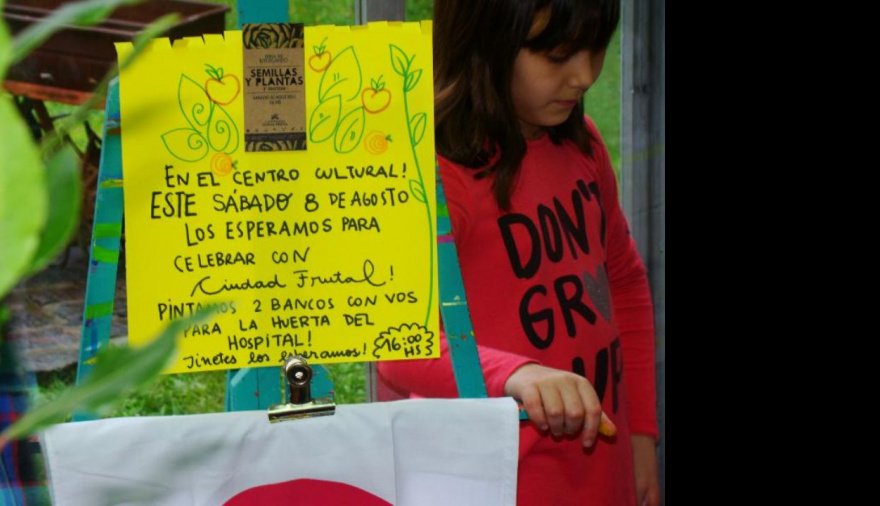 SEMILLAS
Y PLANTAS
EN EL CENTRO CULTURAL!
ESTE SÁBADO 8 DE AGOSTO
LOS ESPERAMOS PARA
CELEBRAR CON
Ciudad Frutal!
PINTAMOS 2 BANCOS CON VOS
PARA LA HUERTA DEL
HOSPITAL!
Jinetes los esperamos!
16:00
HS
DON'T
GRO
UP